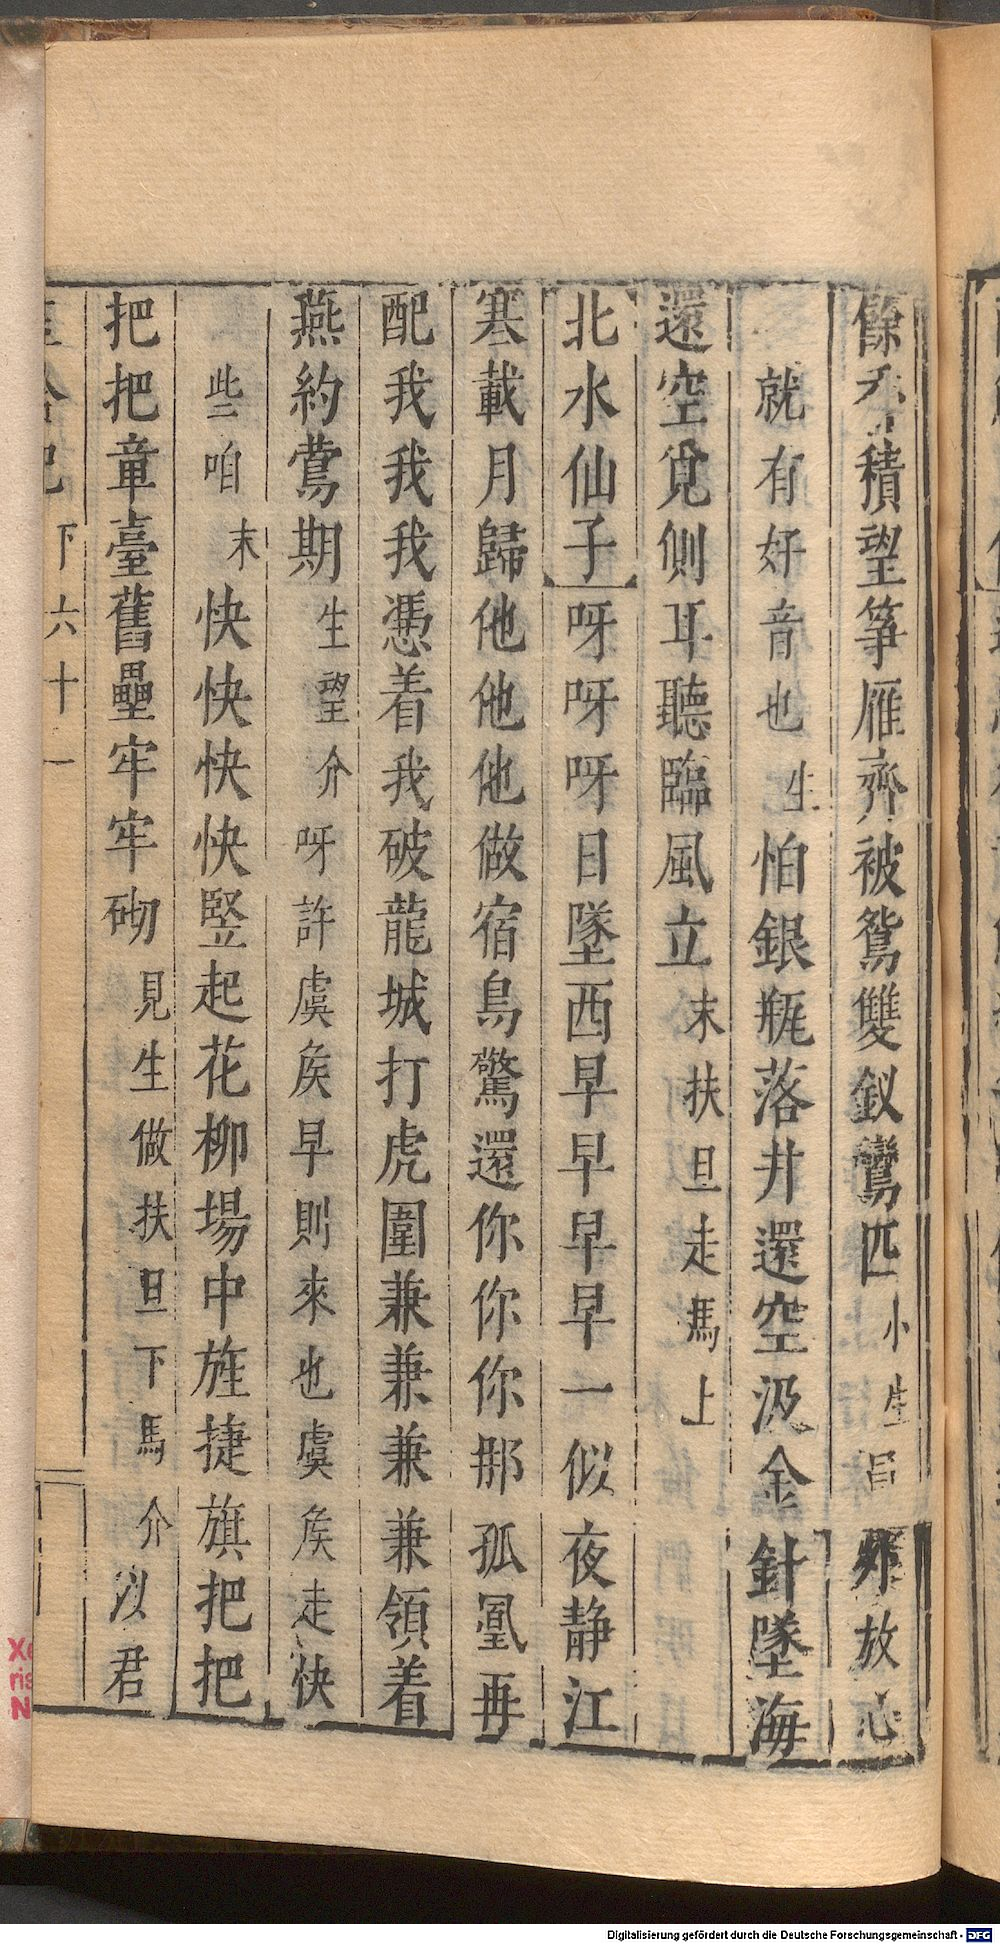 餘香積望箏雁齊被鴛雙釵鸞匹小生員外放心
就有好音也生怕銀瓶落井還空汲金針墜海
還空覓側耳聽臨風立末扶旦走馬上
北水仙子呀呀呀日墜西早早早早一似夜静江
寒載月歸他他他做宿鳥驚還你你你那孤凰再
配我我我憑着我破龍城打虎圍兼兼兼兼領着
燕約鶯期生望介呀許虞矦早則來也虞矦走快
些咱末快快快快竪起花柳場中旌捷旗把把
把把章臺舊壘牢牢砌見生做扶旦下馬介沙君
玉合記下六十一
Digitalisierung gefördert durch die Deutsche Forschungsgemeinschaft - DFG